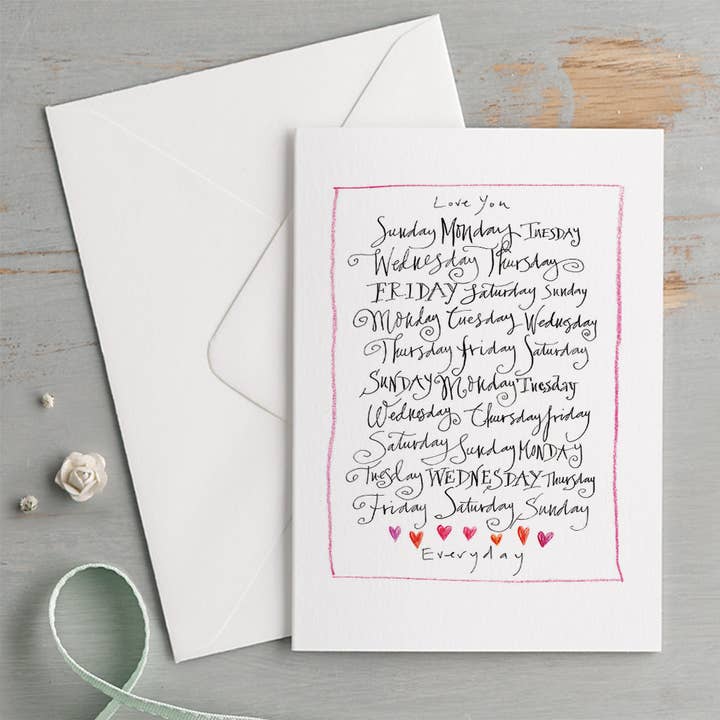 Love You
Sunday Monday TUESDAY
Wednesday Thursday
FRIDAY Saturday Sunday
Monday Tuesday Wednesday
Thursday Friday Saturday
SUNDAY Monday Tuesday
Wednesday Thursday Friday
Saturday Sunday MONDAY
Tuesday WEDNESDAY Thursday
Friday Saturday Sunday
Everyday